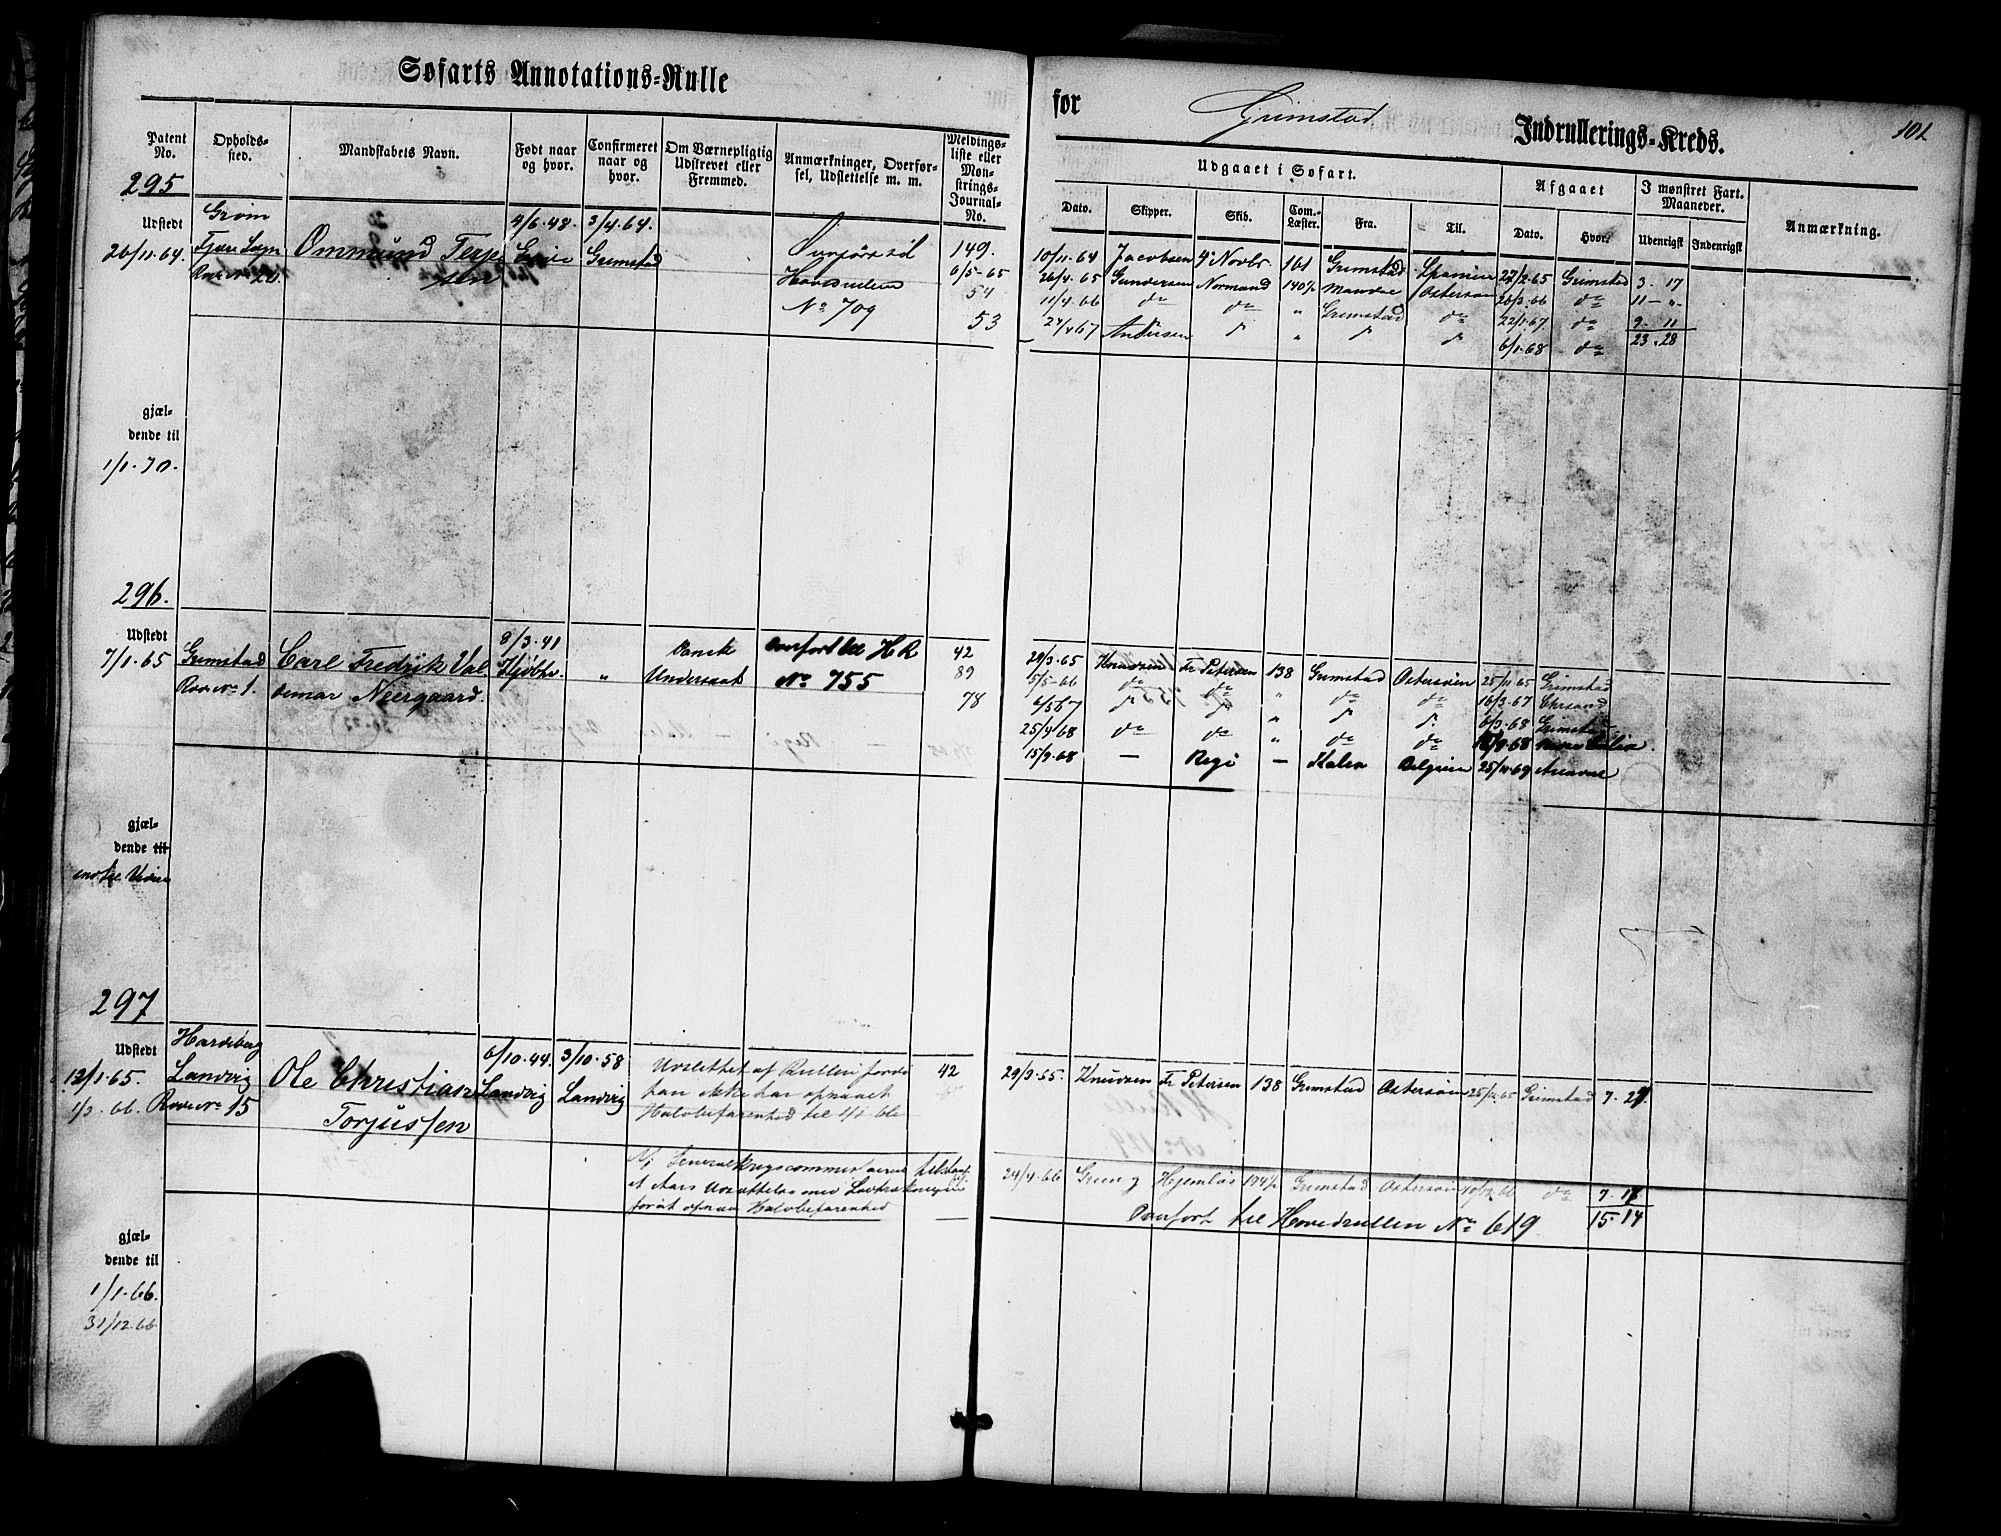 Søfarts Annotations-Rulle
for Grimstad Indrullerings-Kreds.
101
Patent No.
Opholds-sted.
Mandskabets Navn.
Født naar og hvor.
Confirmeret naar og hvor.
Om Værnepligtig Udskrevet eller Fremmed.
Anmærkninger, Overførsel, Udslettelse m. m.
Meldingsliste eller Mønstrings-Journal-No.
Udgaaet i Søfart.
Dato.
Skipper.
Skib.
Com.-Læster.
Fra.
Til.
Afgaaet
Dato.
Hvor.
I mønstret Fart. Maaneder.
Udenrigsk
Indenrigsk
Anmærkning.
295
Udstedt
26/11.64.
Grøm
Fjære Sogn
Rode No 20.
Ommund Terje
sen
4/6.48.
3/4.64.
Grimstad
Overført til
Hovedrullen
No 709
149.
6/5-65
54
53
10/11.64 Jacobsen 4de Novbr 161 Grimstad Spanien 27/2.65 Grimstad 3. 17
26/4.65 Gundersen Normand 140½ Mandal Østersøen 20/3.66 do 11 - "
11/4.66 do do " Grimstad do 22/1.67 do 9. 11
24/4 67 Andersen do " do do 6/1.68 do 23. 28
gjæl-
dende til
1/1.70.
296.
Udstedt
7/1.65
Grimstad
Rode No 1.
Carl Fredrik Val
demar Neergaard.
8/3.41
Kjøbhv.
"
Dansk
Undersaat
Overført til HR
No 755
42
89
78
29/3.65 Knudsen Fr Petersen 138 Grimstad Østersøen 25/11.65 Grimstad
5/5.66 do do " do do 16/3.67 Chrsand
6/5 67 do do " do do 6/3.68 Grimstad
25/4 68 do do " do do
15/9.68 — Regi — Belgien 25/4.69
gjæl-
dende til
297
Udstedt
12/1.65.
1/3.66.
Hardeberg
Landvig
Rode No 15
Ole Christian
Torjussen
6/10.44.
Landvig
3/10.58
Landvig
Udslettet af Rullen fordi
han ikke har opnaaet
Halvbefarenhed til 1/1.66
42
29/3.65. Knudsen Fr Petersen 138 Grimstad Østersøen 25/11.65 Grimstad 7. 27.
forat opnaa Halvbefarenhed
24/4.66 Hjemløs Grimstad Østersøen do
Overført til Hovedrullen No 619
15. 14
gjæl-
dende til
1/1.66.
31/12.66